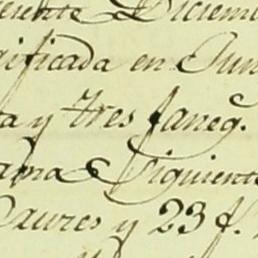 Diciem
ificada en Jun
a y tres faneg.
ama Siguiente
y 23 f.